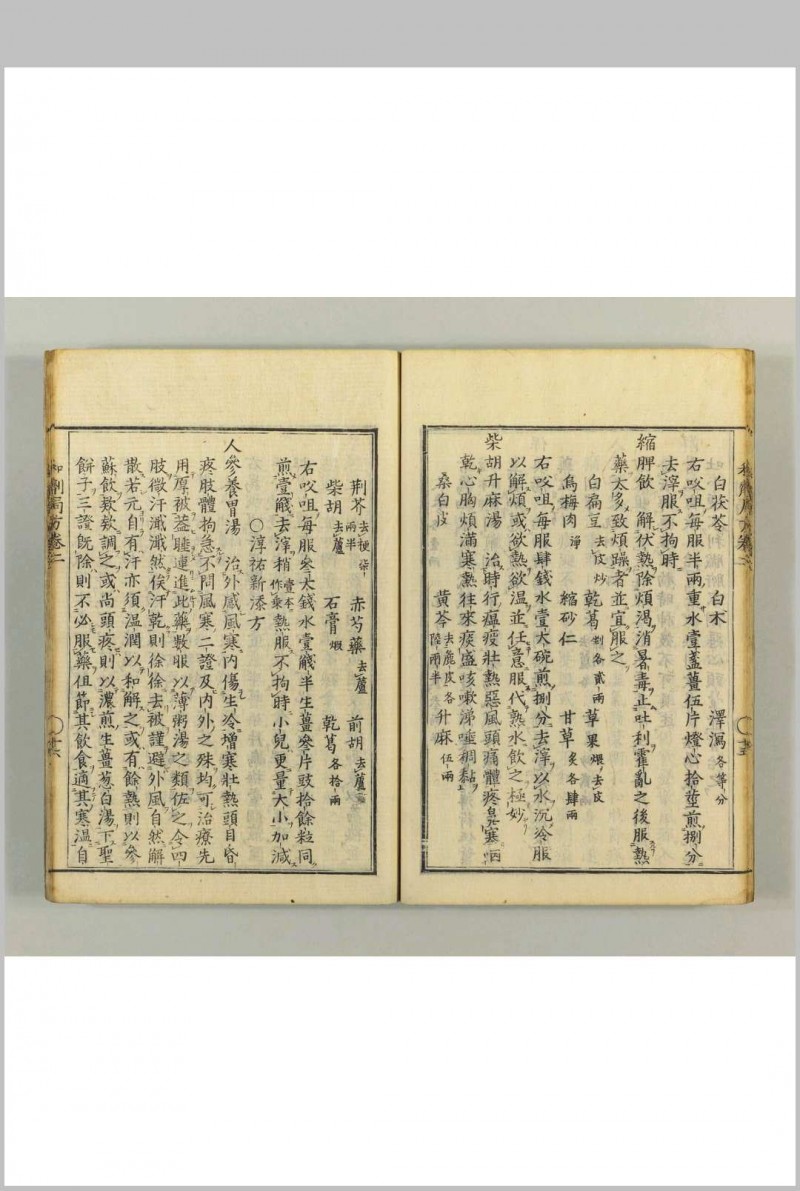 白茯苓 白术 澤瀉各等分
右㕮咀每服半兩重水壹盞薑伍片燈心拾莖煎捌分
去滓服不拘時
縮脾飲 解伏熱除煩渴消暑毒止吐利霍亂之後服熱
藥太多致煩躁者並宜服之
白扁豆去皮炒 乾葛剉各貳兩 草果煨去皮
烏梅肉淨 縮砂仁 甘草炙各肆兩
右㕮咀每服肆錢水壹大碗煎捌分去滓以水沉冷服
以解煩或欲熱欲溫並任意服代熟水飲之極妙
柴胡升麻湯 治時行瘟疫壯熱惡風頭痛體疼鼻塞咽
乾心胸煩滿寒熱往來痰盛咳嗽涕唾稠黏
桑白皮 黄芩去麁皮各陸兩半 升麻伍兩
荆芥去梗柒兩半 赤芍藥去蘆 前胡去蘆
柴胡去蘆 石膏煅 乾葛各拾兩
右㕮咀每服叁大錢水壹觥半生薑叁片豉拾餘粒同
煎壹觥去滓稍壹本作乘熱服不拘時小兒更量大小加減
○淳祐新添方
人參養胃湯 治外感風寒内傷生冷增寒壯熱頭目昏
疼肢體拘急不問風寒二證及内外之殊均可治療先
用厚被蓋睡連進此藥數服以薄粥湯之類佐之令四
肢微汗濈濈然俟汗乾則徐徐去被謹避外風自然解
散若元自有汗亦須溫潤以和解之或有餘熱則以參
蘇飲欵欵調之或尚頭疼則以濃煎生薑葱白湯下聖
餅子三證旣除則不必服藥但節其飲食適其寒溫自
和劑局方卷二